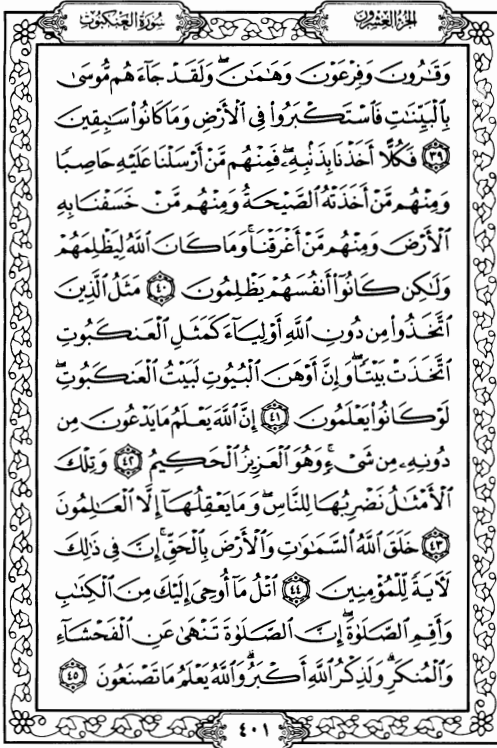 الجزء العشرون
سورة العنكبوت
وَقَٰرُونَ وَفِرْعَوْنَ وَهَٰمَٰنَ ۖ وَلَقَدْ جَآءَهُم مُّوسَىٰ
بِالْبَيِّنَٰتِ فَاسْتَكْبَرُوا۟ فِى الْأَرْضِ وَمَا كَانُوا۟ سَٰبِقِينَ
﴿٣٩﴾ فَكُلًّا أَخَذْنَا بِذَنۢبِهِۦ ۖ فَمِنْهُم مَّنْ أَرْسَلْنَا عَلَيْهِ حَاصِبًا
وَمِنْهُم مَّنْ أَخَذَتْهُ الصَّيْحَةُ وَمِنْهُم مَّنْ خَسَفْنَا بِهِ
الْأَرْضَ وَمِنْهُم مَّنْ أَغْرَقْنَا ۚ وَمَا كَانَ اللَّهُ لِيَظْلِمَهُمْ
وَلَٰكِن كَانُوٓا۟ أَنفُسَهُمْ يَظْلِمُونَ ﴿٤٠﴾ مَثَلُ الَّذِينَ
اتَّخَذُوا۟ مِن دُونِ اللَّهِ أَوْلِيَآءَ كَمَثَلِ الْعَنكَبُوتِ
اتَّخَذَتْ بَيْتًا ۖ وَإِنَّ أَوْهَنَ الْبُيُوتِ لَبَيْتُ الْعَنكَبُوتِ ۖ
لَوْ كَانُوا۟ يَعْلَمُونَ ﴿٤١﴾ إِنَّ اللَّهَ يَعْلَمُ مَا يَدْعُونَ مِن
دُونِهِۦ مِن شَىْءٍ ۚ وَهُوَ الْعَزِيزُ الْحَكِيمُ ﴿٤٢﴾ وَتِلْكَ
الْأَمْثَٰلُ نَضْرِبُهَا لِلنَّاسِ ۖ وَمَا يَعْقِلُهَآ إِلَّا الْعَٰلِمُونَ
﴿٤٣﴾ خَلَقَ اللَّهُ السَّمَٰوَٰتِ وَالْأَرْضَ بِالْحَقِّ ۚ إِنَّ فِى ذَٰلِكَ
لَءَايَةً لِّلْمُؤْمِنِينَ ﴿٤٤﴾ اتْلُ مَآ أُوحِىَ إِلَيْكَ مِنَ الْكِتَٰبِ
وَأَقِمِ الصَّلَوٰةَ ۖ إِنَّ الصَّلَوٰةَ تَنْهَىٰ عَنِ الْفَحْشَآءِ
وَالْمُنكَرِ ۗ وَلَذِكْرُ اللَّهِ أَكْبَرُ ۗ وَاللَّهُ يَعْلَمُ مَا تَصْنَعُونَ ﴿٤٥﴾
٤٠١